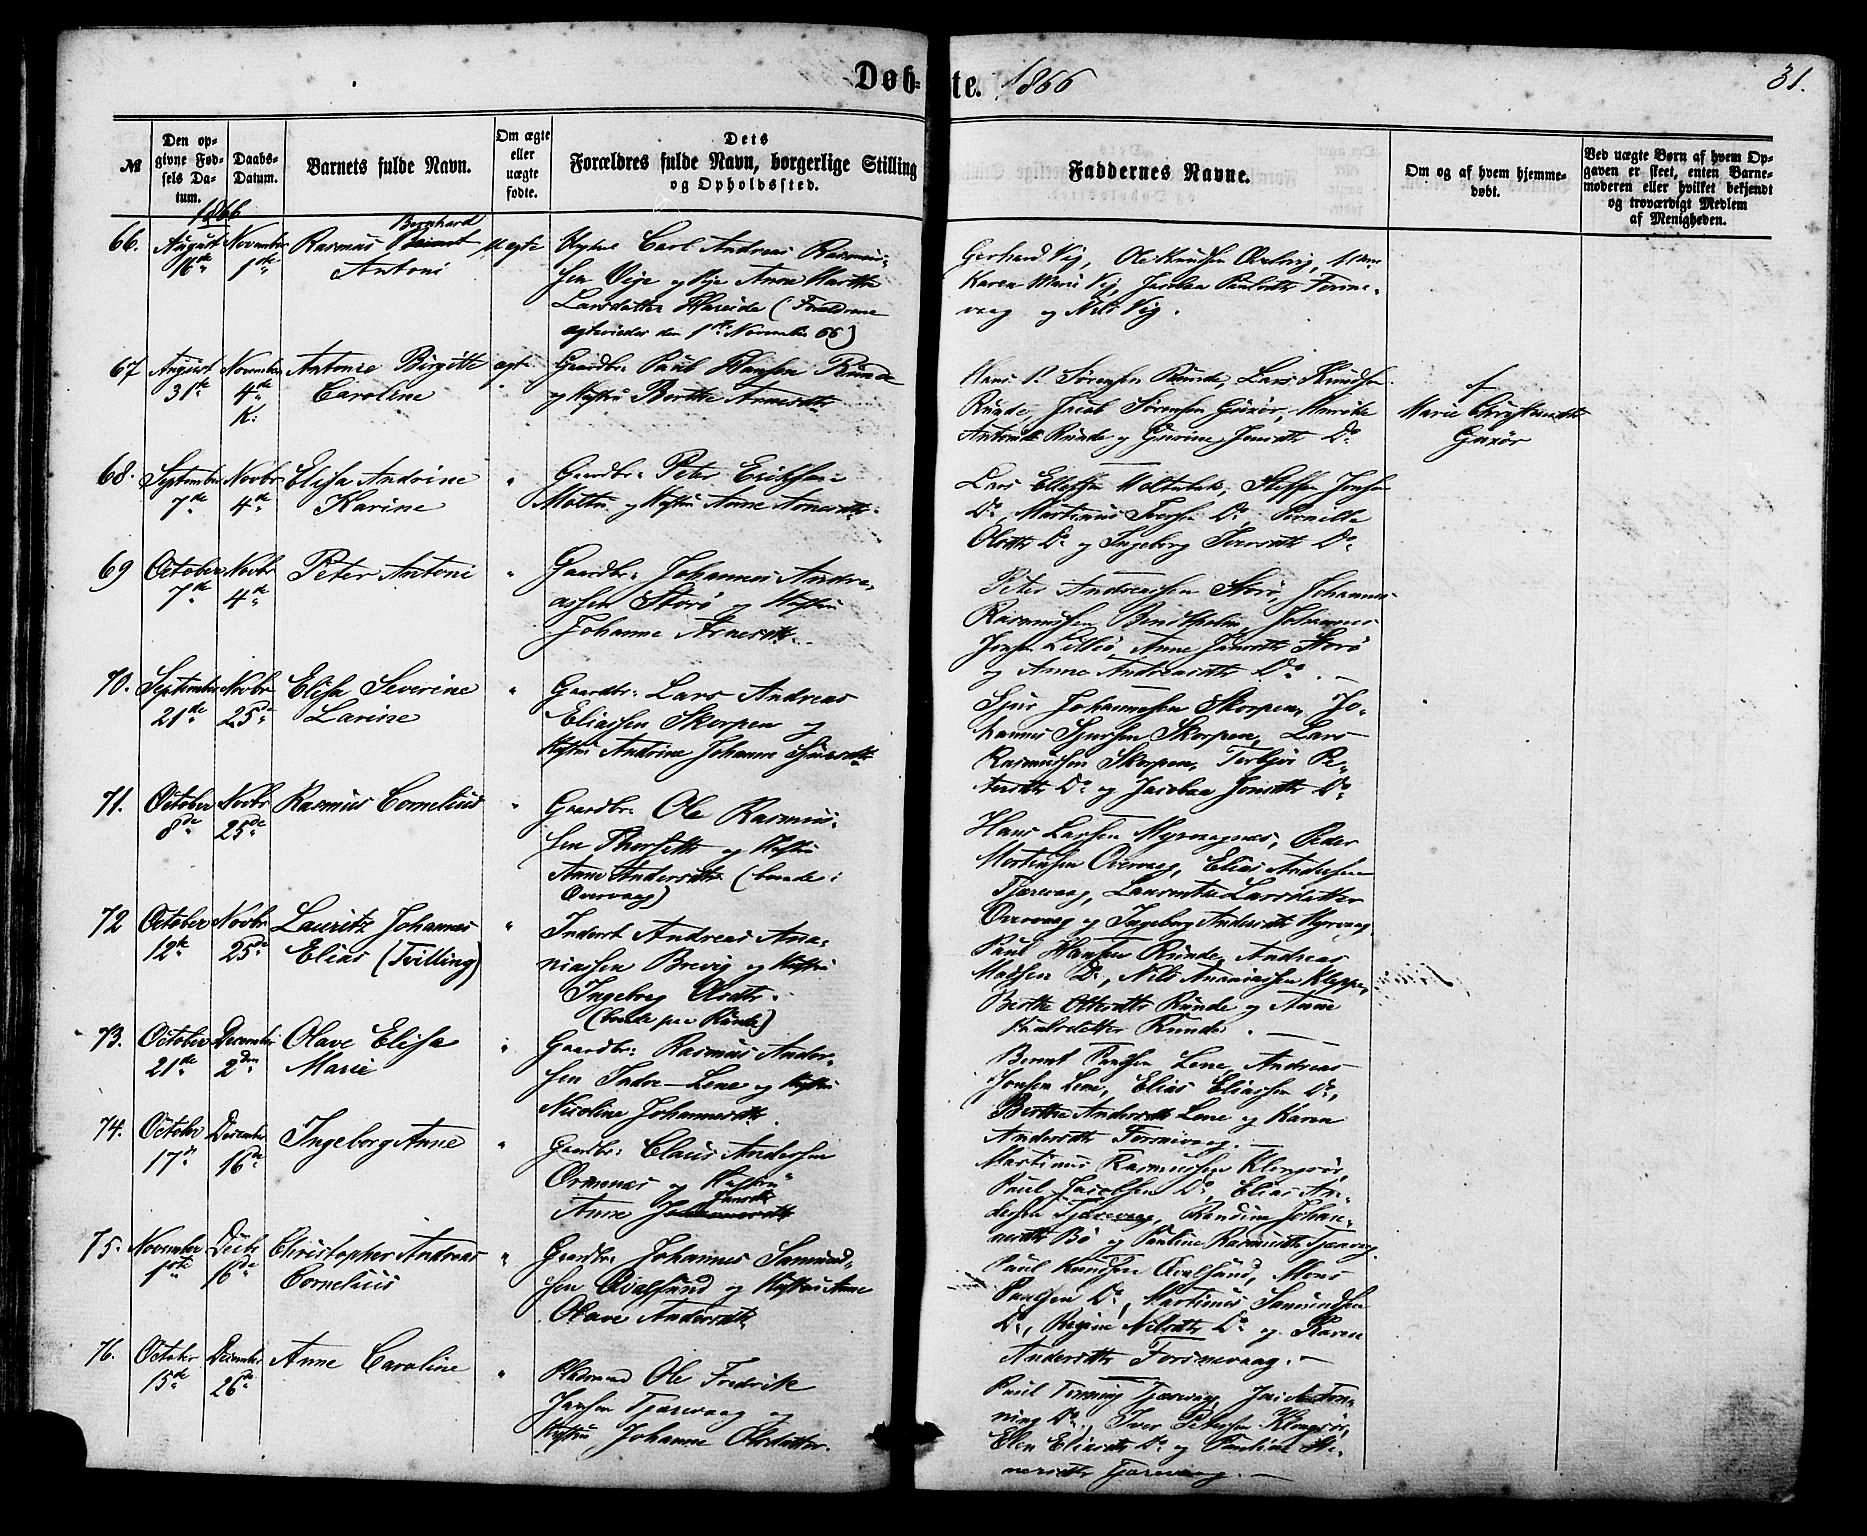 Døb-te. 1866
31.
№
Den opgivne Fødsels Datum.
Daabs-Datum.
Barnets fulde Navn.
Om ægte eller uægte fødte.
Dets Forældres fulde Navn, borgerlige Stilling og Opholdssted.
Faddernes Navne.
Om og af hvem hjemmedøbt.
Ved uægte Børn af hvem Opgaven er skeet, enten Barnemoderen eller hvilket bekjendt og troværdigt Medlem af Menigheden.
1866
66. August 16de November 1ste
Rasmus Bernhard
Antoni
uægte
Carl Andreas Rasmus-
sen Vige og Pige Anne Marthe
Larsdatter Hareide (Forældrene
ægteviedes den 1ste November 66)
Gerhard Vig, Ole Knudsen
Karen Marie Vig, Jacobea Paulsdtr
vaag og Nils Vig.
67 August 31te November 4de K.
Antonie Birgitte
Caroline
ægte
Gaardbr: Paul Hansen Runde
og Hustru Berthe Arnesdtr
Hans P. Sørensen Runde, Lars Knudsen
Runde, Jacob Sørensen Goxør,
Runde og Gurine Jensdtr Do
af
Marie
Goxør
68. September 7de Novbr 4de
Elisa Andrine
Karine
"
Gaardbr: Peter Eriksen
Moltu og Hustru Anne Arnesdtr
Lars Ellefsen Moltubak, Steffen Jonsen
Do, Martinus Iversen Do, Pernille
Olsdtr Do og Ingeborg Iversdtr Do
69 October 7de Novbr 4de
Peter Antoni
"
Gaardbr: Johannes Andre-
assen Storø og Hustru
Johanne Arnesdtr.
Peter Andreassen Storø, Johannes
Rasmussen Johannes
Jonsen Lillø, Anne Jansdtr Storø
og Anne Andreasdtr Do. -
70. September 21de Novbr 25de
Elisa Severine
Larine
"
Gaardbr: Lars Andreas
Eliassen Skorpen og
Hustru Andrine Johanne Sjursdtr
Sjur Johannesen Skorpen, Jo-
hannes Sjursen Skorpen, Lars
Rasmussen Skorpen, Torbjør Pe-
dersdtr Do og Jacobea Jonsdtr Do
71. October 8de Novbr 25de
Rasmus Cornelius
"
Gaardbr: Ole Rasmus-
sen Thorseth og Hustru
Anne Andersdtr (boende i
Overvaag)
Hans Larsen Myrvaagnes, Peder
Mortensen Overvaag, Elias Andersen
Tjærevaag, Larsdatter
Overvaag og Ingeborg Andersdtr Myrvaag
72 October 12te Novbr 25de
Lauritz Johannes
Elias (Tvilling)
"
Inderst Andreas Ana-
niassen Brevig og Hustru
Ingeborg Olsdtr.
(boende paa Runde)
Paul Hansen Runde, Andreas
Madsen Do, Nils Ananiassen Kleppe,
Berthe Runde og Anne
Paulsdatter Runde. -
73. October 21de December 2den
Olave Elisa
Marie
"
Gaardbr: Rasmus Ander-
sen Indre-Lene og Hustru
Nicoline Johannesdtr.
Bernt Paulsen Lene, Andreas
Jonsen Lene, Elias Eliassen Do,
Berthe Andersdtr Lene og Karen
Andersdtr Fosnevaag. -
74. October 17de December 16de
Ingeborg Anne
"
Gaardbr: Claus Andersen
Ormenæs og Hustru
Anne Jansdtr
Martinus Rasmussen Klongsør,
Paul Jacobsen Do, Elias An-
dersen Tjærevaag, Rendine Johan-
nesdtr Bø og Pauline Rasmusdtr Tjærevaag.
75. November 1ste Decbr 16de
Christopher Andreas
Cornelius
"
Gaardbr: Johannes Samund-
sen Qvalsund og Hustru Anne
Olave Andersdtr.
Paul Knudsen Qvalsund, Mons
Paulsen Do, Martinus Samundsen
Do, Regine Nilsdtr Do og Karen
Andersdtr Fosnevaag. -
76. October 15de December 26de
Anne Caroline
"
Ole Fredrik
Jansen Tjærevaag og
Hustru Johanne Olsdatter.
Paul Tjærevaag,
Do, Iver Petersen Klongsør,
Elen Eliasdtr Do og Pauline
Tjærevaag. -